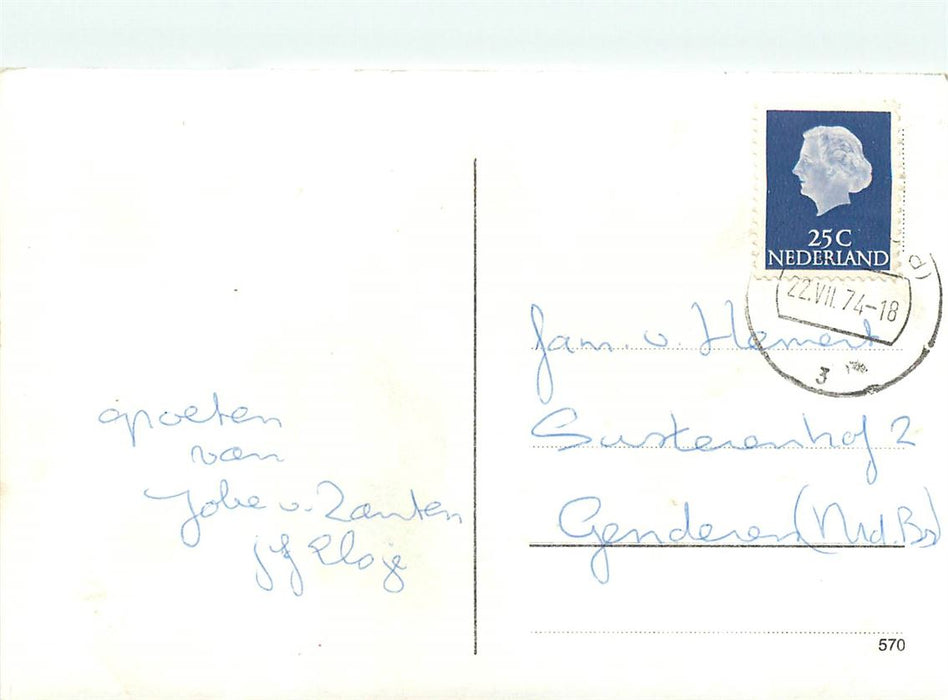 groeten
van
Jobe v. Zanten
25 C
NEDERLAND
22.VII.74-18
3
Fam. v. Hemert
Susterenhof 2
Genderen (Nrd. Br)
570